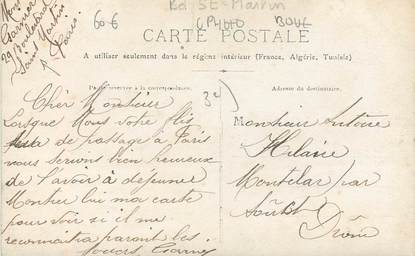 60 €
Bd St-Martin
CPHOTO BOUE
Garnier
29 Boulevard
Saint Martin
Paris
CARTE POSTALE
A utiliser seulement dans le régime intérieur (France, Algérie, Tunisie)
Partie réservée à la correspondance.
Adresse du destinataire.
Cher Monsieur
Lorsque Mous votre fils
sera de passage à Paris
nous serons bien heureux
de l'avoir à déjeuner
Montrer lui ma carte
pour voir si il me
reconnaitra parmi les
Monsieur Antoine
Hilaire
Montelar par
Drôme